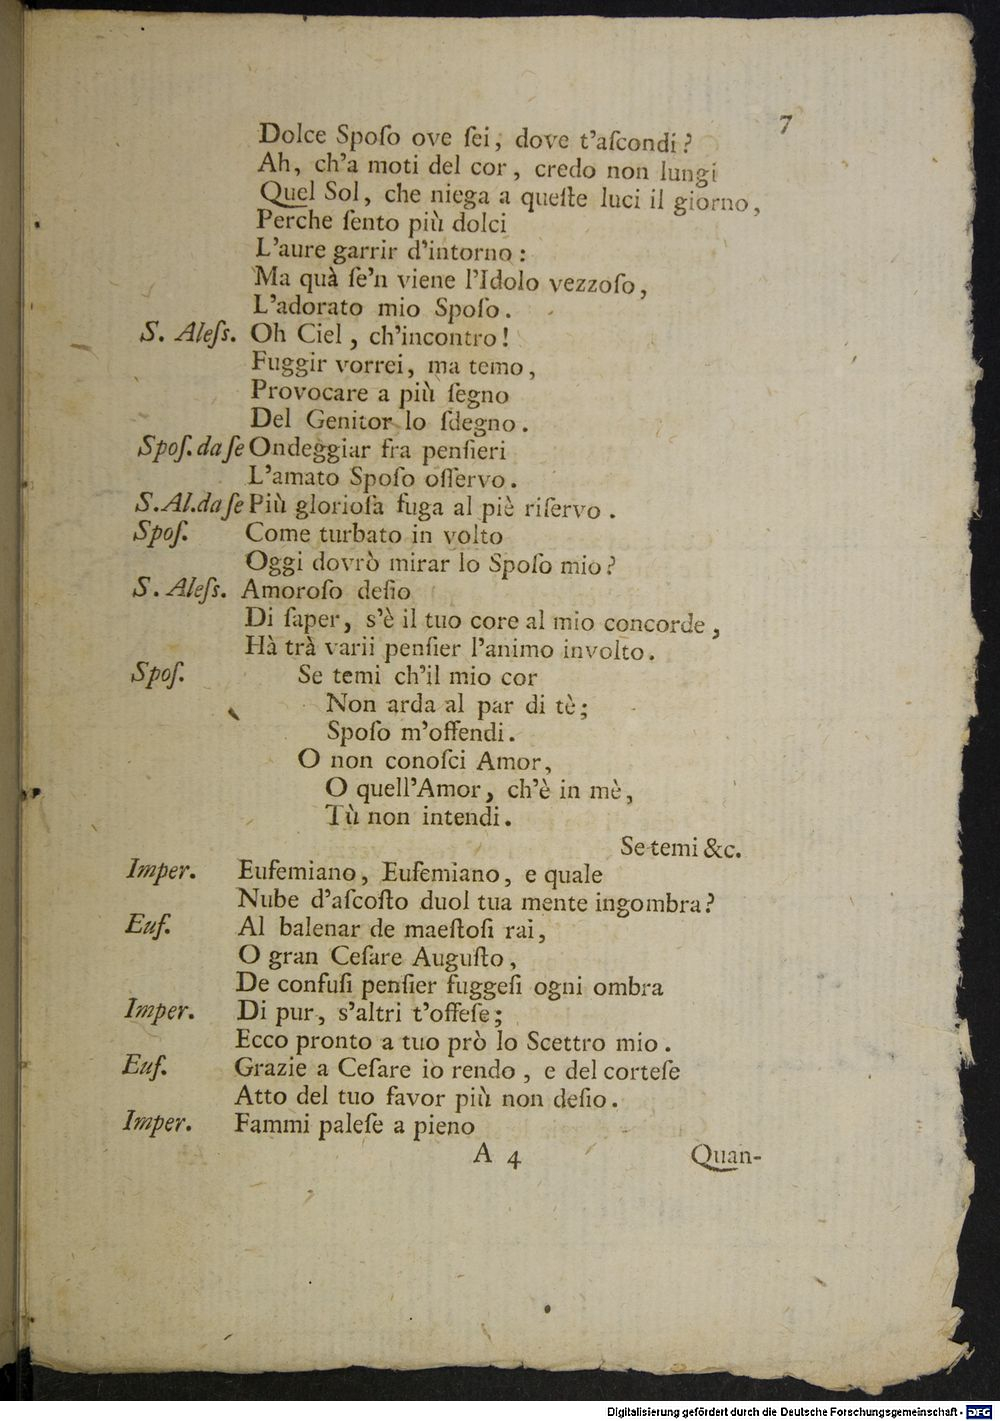 7
Dolce Spoſo ove ſei, dove t'aſcondi?
Ah, ch'a moti del cor, credo non lungi
Quel Sol, che niega a queſte luci il giorno,
Perche ſento più dolci
L'aure garrir d'intorno:
Ma quà ſe'n viene l'Idolo vezzoſo,
L'adorato mio Spoſo.
S. Aleſs. Oh Ciel, ch'incontro!
Fuggir vorrei, ma temo,
Provocare a più ſegno
Del Genitor lo ſdegno.
Spoſ. da ſe Ondeggiar fra penſieri
L'amato Spoſo oſſervo.
S. Al. da ſe Più glorioſa fuga al piè riſervo.
Spoſ. Come turbato in volto
Oggi dovrò mirar lo Spoſo mio?
S. Aleſs. Amoroſo deſio
Di ſaper, s'è il tuo core al mio concorde,
Hà trà varii penſier l'animo involto.
Spoſ. Se temi ch'il mio cor
Non arda al par di tè;
Spoſo m'offendi.
O non conoſci Amor,
O quell'Amor, ch'è in mè,
Tù non intendi.
Se temi &c.
Imper. Eufemiano, Eufemiano, e quale
Nube d'aſcoſto duol tua mente ingombra?
Euf. Al balenar de maeſtoſi rai,
O gran Ceſare Auguſto,
De confuſi penſier fuggeſi ogni ombra
Imper. Di pur, s'altri t'offeſe;
Ecco pronto a tuo prò lo Scettro mio.
Euf. Grazie a Ceſare io rendo, e del corteſe
Atto del tuo favor più non deſio.
Imper. Fammi paleſe a pieno
A 4 Quan-
Digitalisierung gefördert durch die Deutsche Forschungsgemeinschaft - DFG